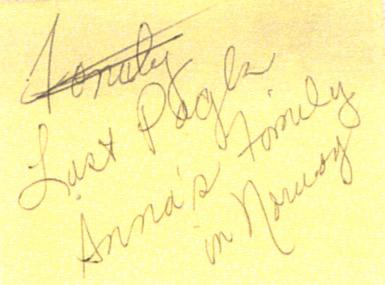 Family
Last Pages
Anna's Family
in Norway